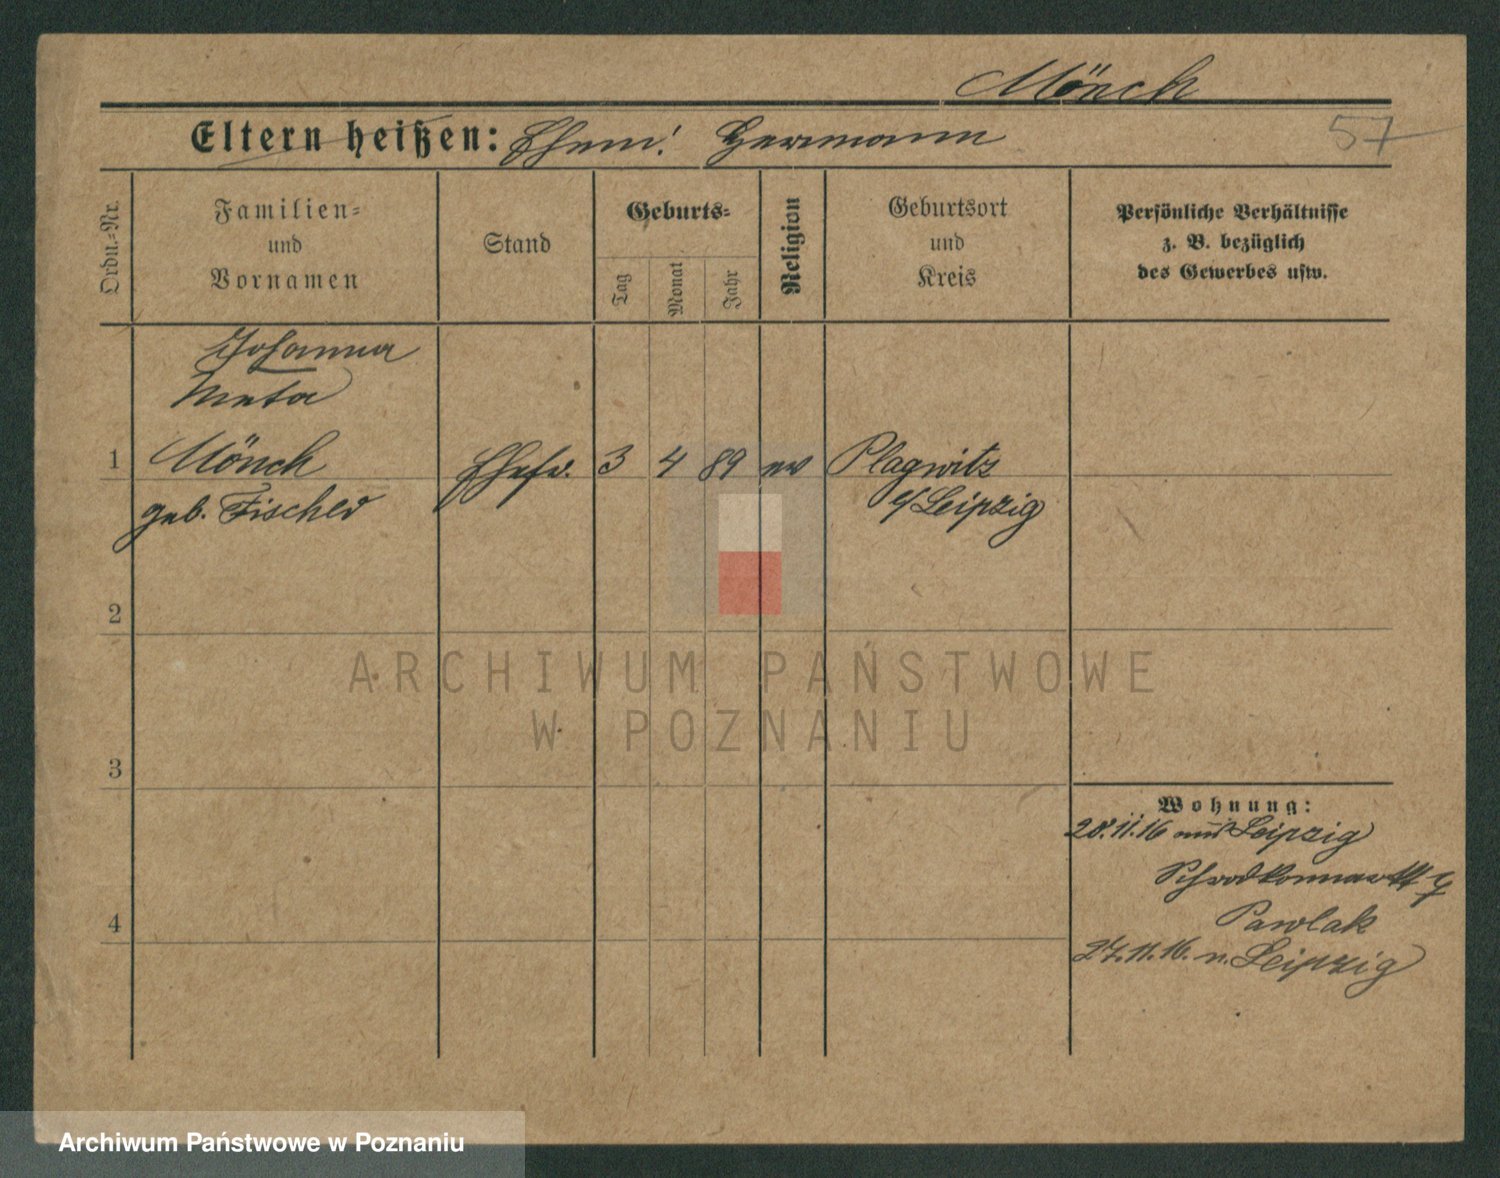 Mönch
Eltern heißen: Ehem: Hermann
57
Ordn.-Nr.
Familien-
und
Vornamen
Stand
Geburts-
Tag
Monat
Jahr
Religion
Geburtsort
und
Kreis
Persönliche Verhältnisse
z. B. bezüglich
des Gewerbes usw.
Johanna
Meta
1 Mönch Ehefr. 3 4 89 ev Plagwitz
geb. Fischer b/Leipzig
2
3
4
Wohnung:
28.11.16 aus Leipzig
Schrodkamarkt
Pawlak
27.11.16. n. Leipzig
ARCHIWUM PAŃSTWOWE
W POZNANIU
Archiwum Państwowe w Poznaniu